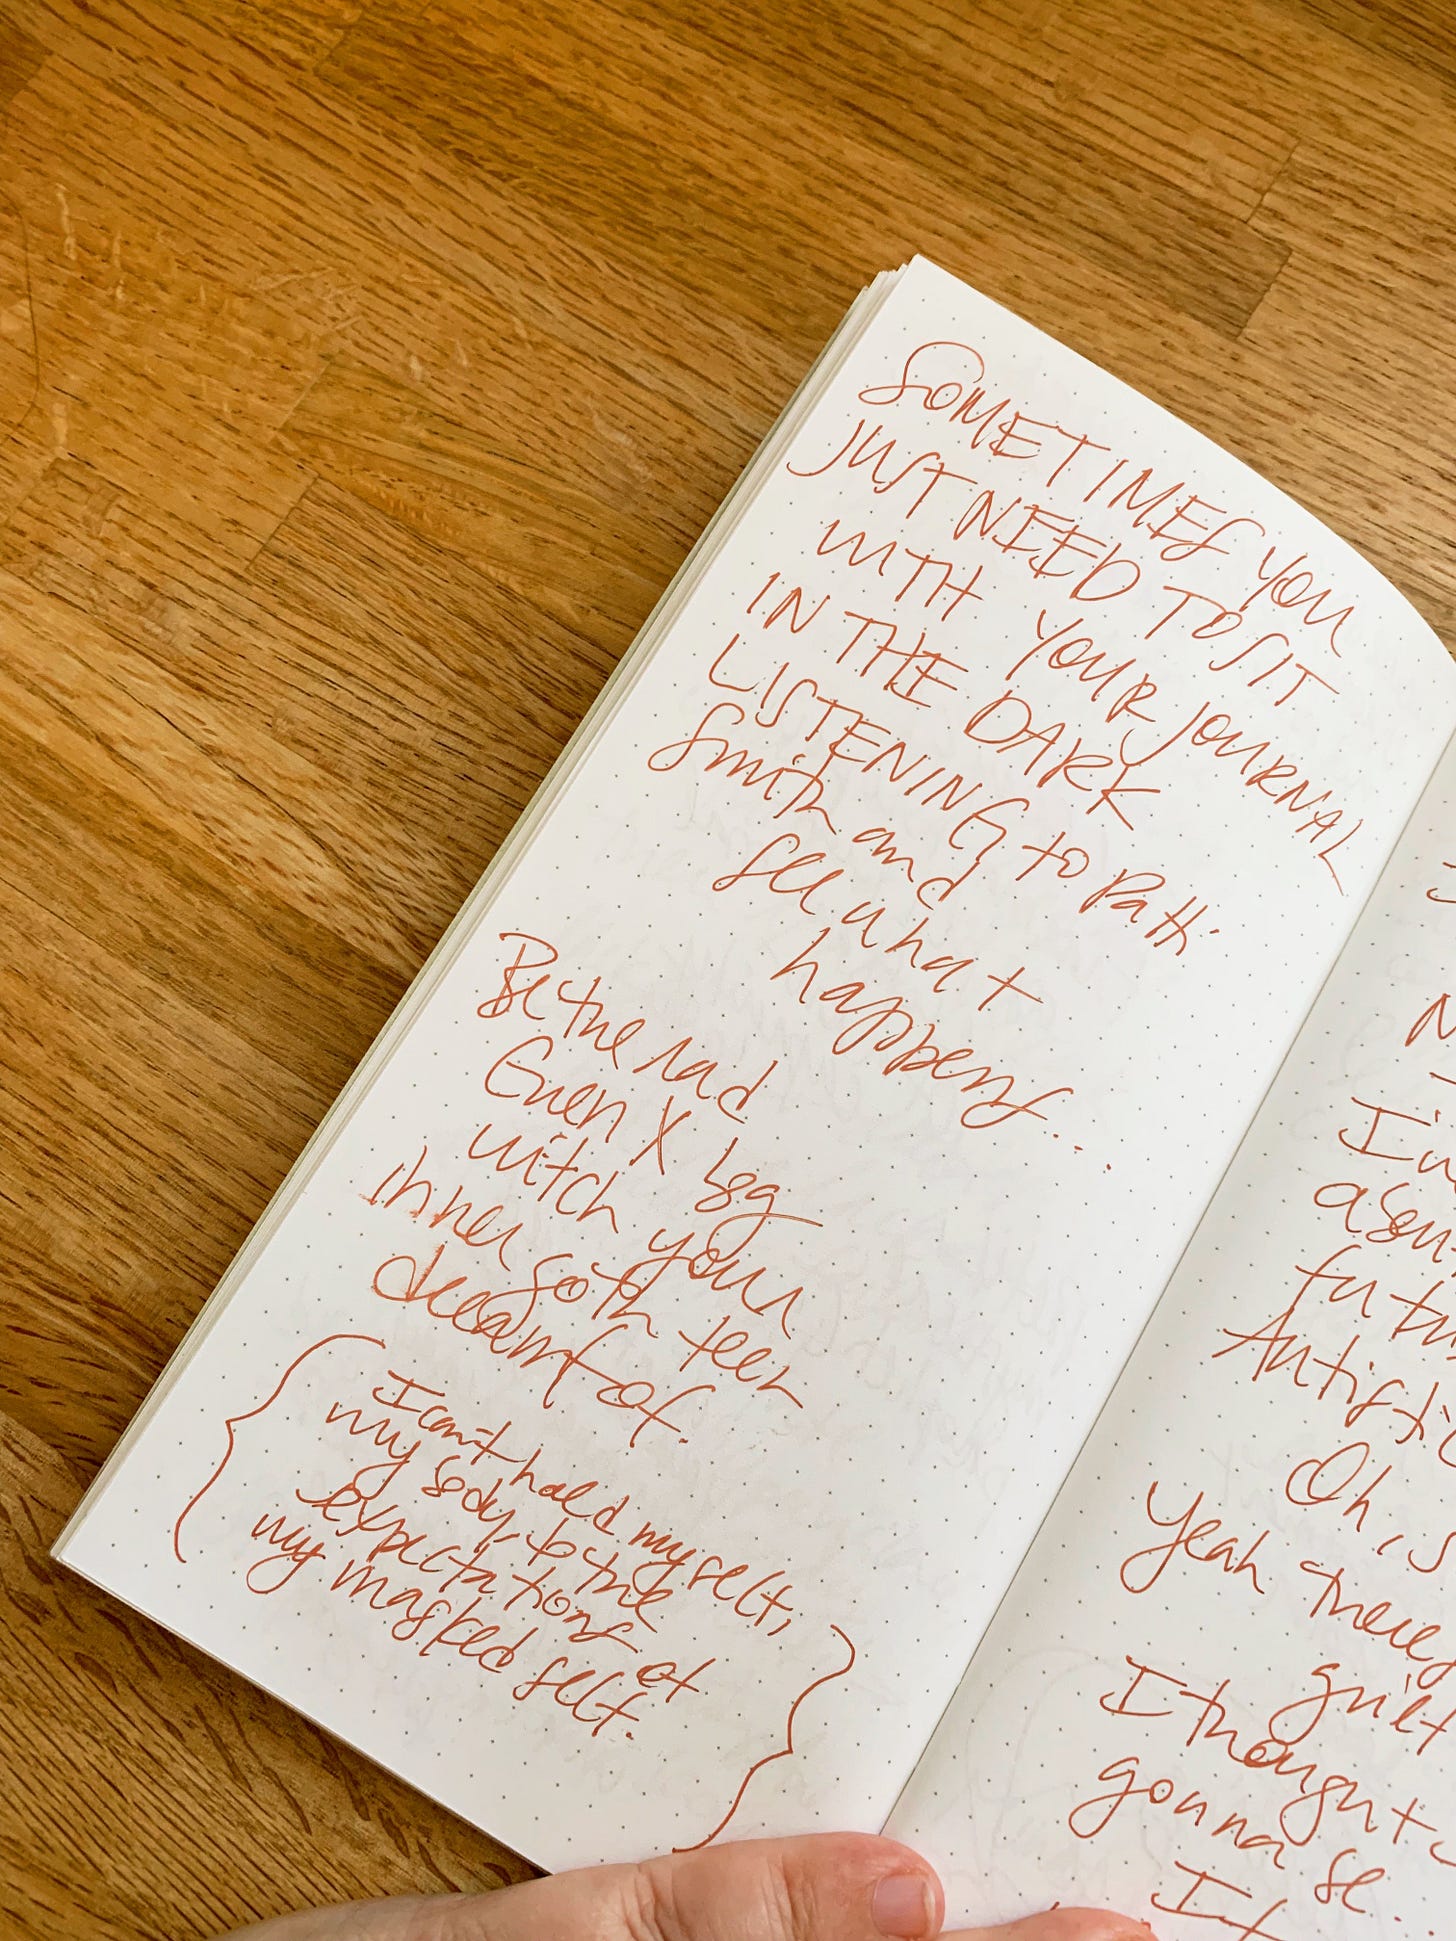 SOMETIMES YOU
JUST NEED TO SIT
WITH YOUR JOURNAL
IN THE DARK
LISTENING to Patti
Smith and
see what
happens...
Be the rad
Gen X
witch your
inner goth teen
dreamt of.
I can't hold myself,
my body, to the
expectations of
my masked self.
Oh,
Yeah there's
guilt
I thought
gonna be...